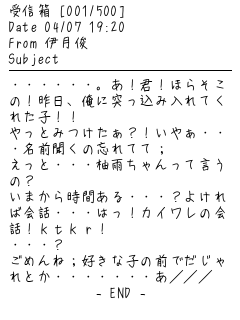 受信箱 [001/500]
Date 04/07 19:20
From 伊月俊
Subject
・・・・・・。あ！君！ほらそこ
の！昨日、俺に突っ込み入れてく
れた子！！
やっとみつけたぁ？！いやぁ・・
・名前聞くの忘れてて；
えっと・・・柚雨ちゃんって言う
の？
いまから時間ある・・・？よけれ
ば会話・・・はっ！カイワレの会
話！ｋｔｋｒ！
・・・？
ごめんね；好きな子の前でだじゃ
れとか・・・・・・・あ///
- END -